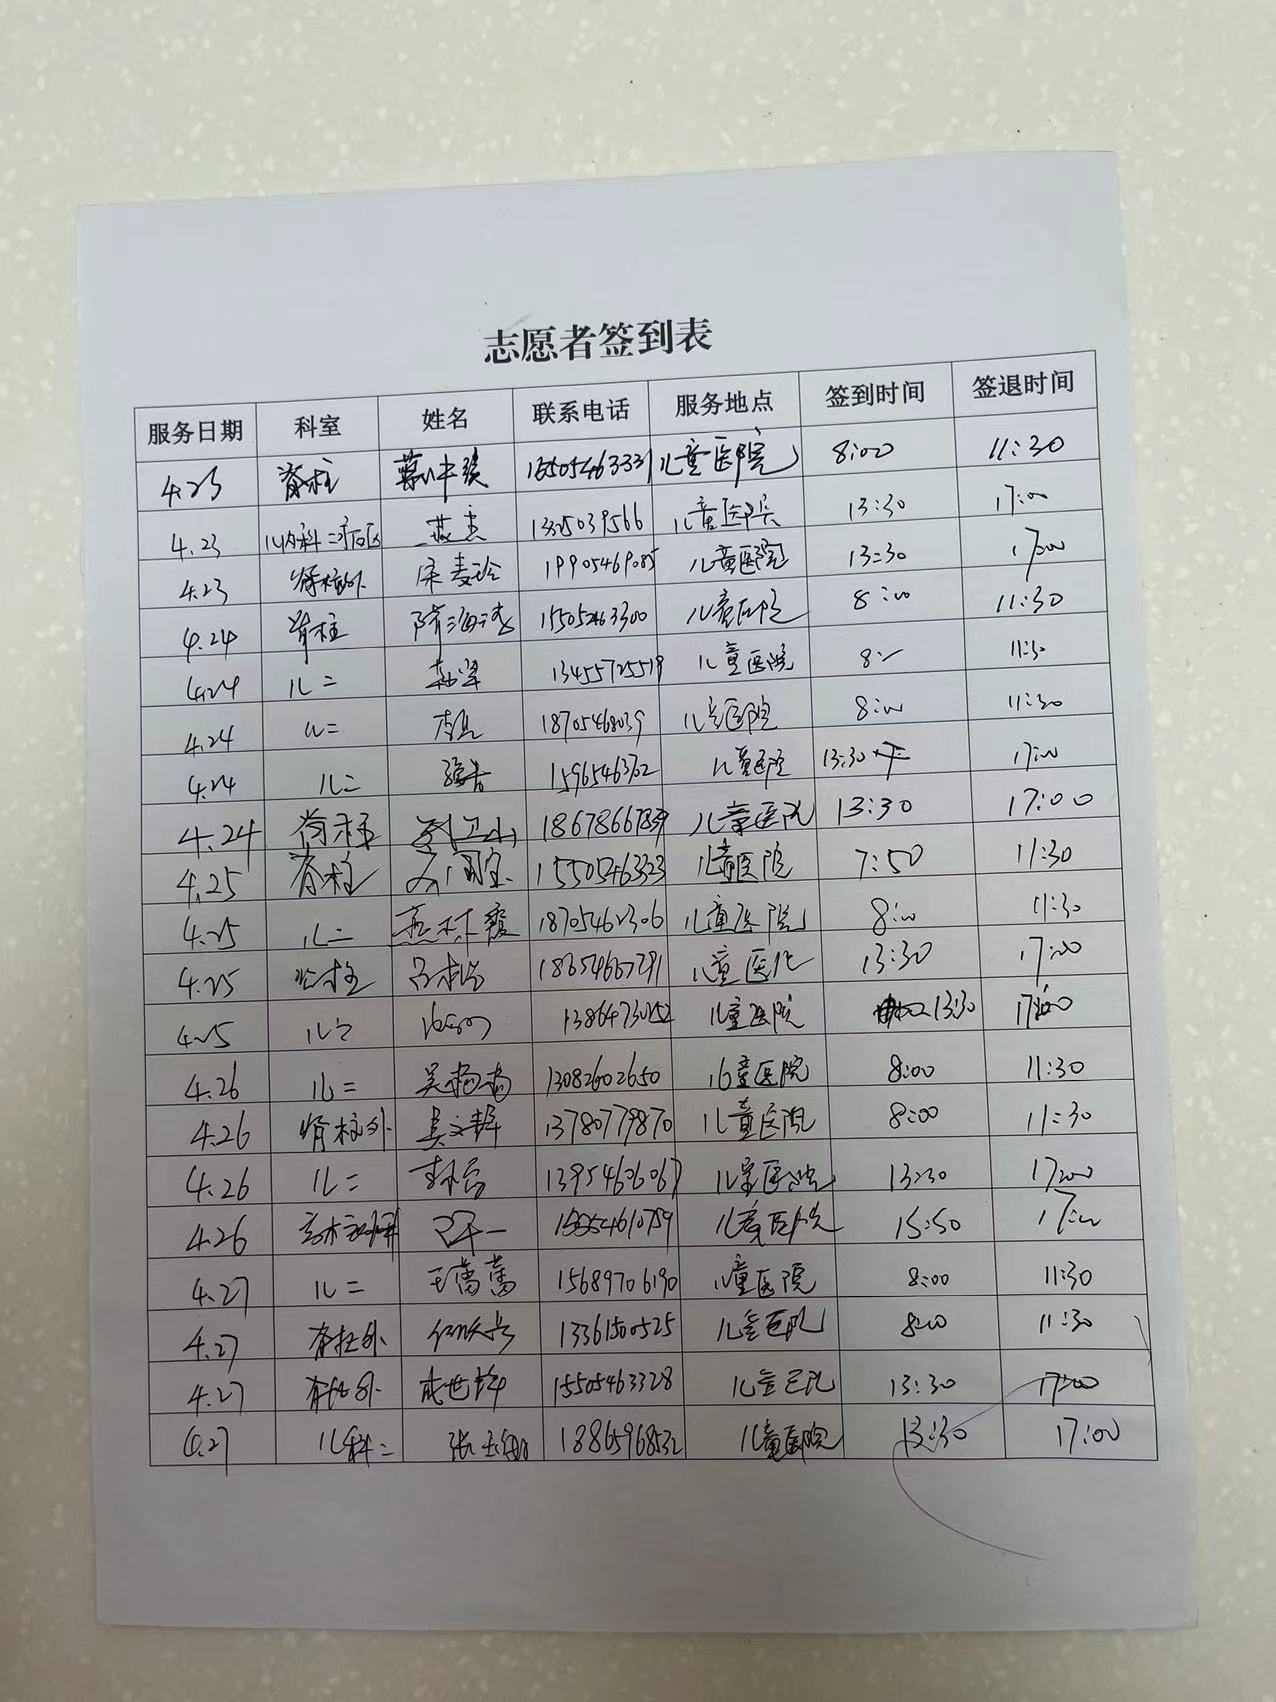 志愿者签到表
服务日期 科室 姓名 联系电话 服务地点 签到时间 签退时间
4.23 脊柱 15505463331 儿童医院 8:00 11:30
4.23 儿内科二病区 燕 1325039566 儿童医院 13:30 17:00
4.23 脊柱外 宋麦玲 19905469085 儿童医院 13:30 17:00
4.24 脊柱 隋海涛 15505463300 儿童医院 8:00 11:30
4.24 儿二 13455725519 儿童医院 8: 11:30
4.24 儿二 18705468039 儿童医院 8:00 11:30
4.24 儿二 15965463702 儿童医院 13:30 17:00
4.24 脊柱 刘卫山 18678667839 儿童医院 13:30 17:00
4.25 脊柱 国宝 15505463323 儿童医院 7:50 11:30
4.25 儿二 燕林霞 18705462306 儿童医院 8:00 11:30
4.25 脊柱 吕松 18654667291 儿童医院 13:30 17:00
4.25 儿二 儿童医院 13:30 17:00
4.26 儿二 吴杨杨 13082602650 儿童医院 8:00 11:30
4.26 脊柱外 吴文静 13780779870 儿童医院 8:00 11:30
4.26 儿二 李 13954606067 儿童医院 13:30 17:00
4.26 儿童医院 15:50 17:00
4.27 儿二 王蕾蕾 15689706190 儿童医院 8:00 11:30
4.27 脊柱外 13361500525 儿童医院 8:00 11:30
4.27 脊柱外 成世 15505463328 儿童医院 13:30 17:00
4.27 儿科二 张玉 18865968532 儿童医院 13:30 17:00